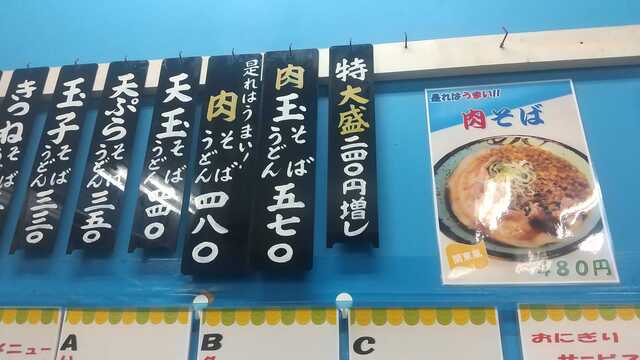 特大盛二四〇円増し
肉玉そばうどん 五七〇
是れはうまい!
肉そばうどん 四八〇
天玉そばうどん 四四〇
天ぷらそばうどん 三五〇
玉子そばうどん 三三〇
きつねそば
是れはうまい!!
肉そば
関東風
480円
メニュー
A
B
C
おにぎり
サービス